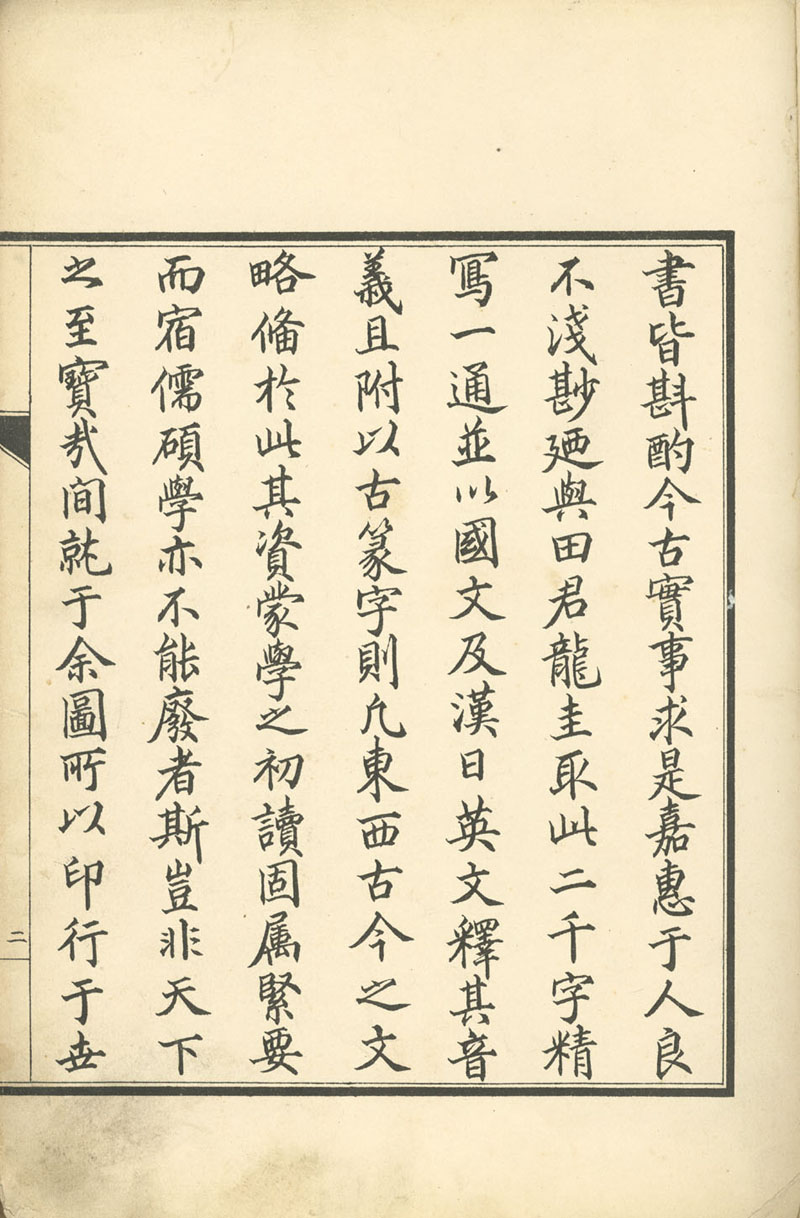 書皆斟酌今古實事求是嘉惠于人良
不淺尠廼與田君龍圭取此二千字精
寫一通並以國文及漢日英文釋其音
義且附以古篆字則凡東西古今之文
略俻於此其資蒙學之初讀固属緊要
而宿儒碩學亦不能廢者斯豈非天下
之至寶哉间就于余圖所以印行于世
二